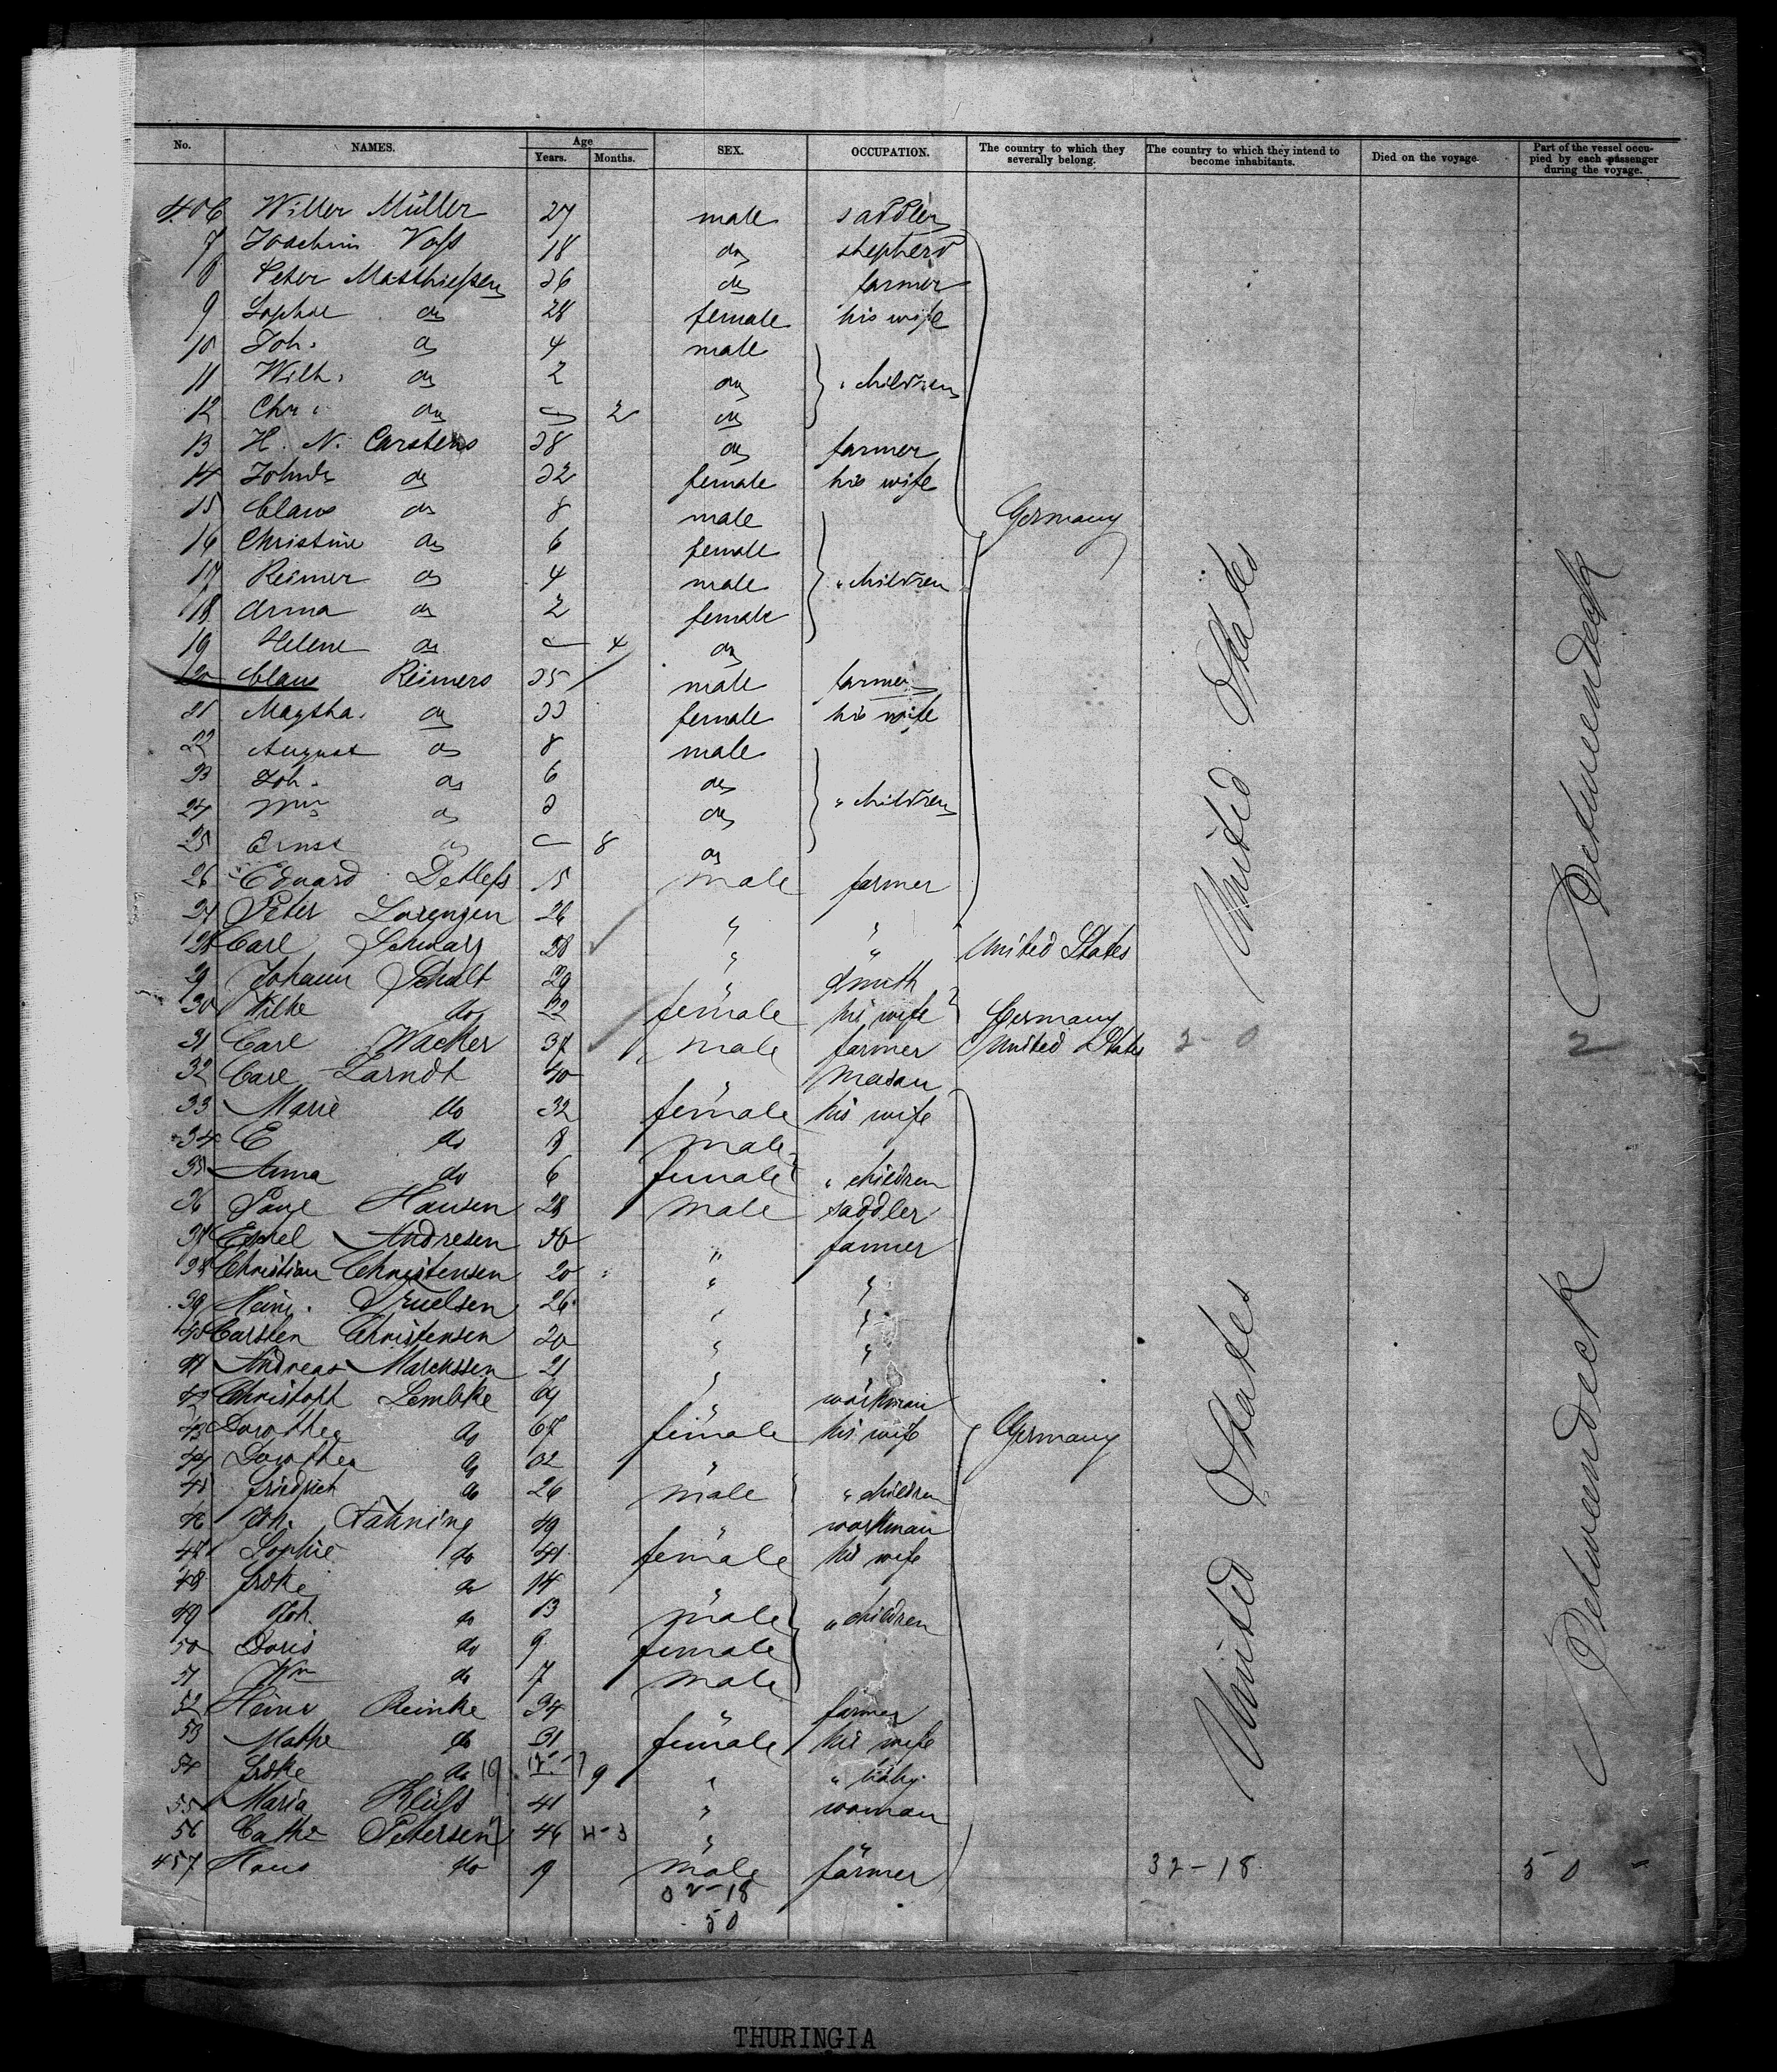 No. NAMES. Age Years. Months. SEX. OCCUPATION. The country to which they severally belong. The country to which they intend to become inhabitants. Died on the voyage. Part of the vessel occupied by each passenger during the voyage.
406 Müller 27 male saddler
7 Joachim Voß 18 do shepherd
8 Peter Matthießen 36 do farmer
9 Sophie do 28 female his wife
10 Joh. do 4 male
11 Wilh. do 2 do " children
12 Chr. do 2 do
13 H. N. Carstens 38 do farmer
14 do 32 female his wife
15 Claus do 8 male
16 Christine do 6 female Germany
17 Reimer do 4 male " children
18 Anna do 2 female
19 Helene do 4 do
20 Claus Reimers 35 male farmer
21 do 33 female his wife
22 August do 8 male
23 Joh. do 6 do
24 Wm do 3 do " children
25 Ernst do 8 do
26 Eduard Detlefs 15 male farmer
27 Peter Lorenzen 26 " "
28 Carl Schwarz 28 " " United States
29 Johann Schult 29 " smith
30 do 22 female his wife Germany
31 Carl Wacker 37 male farmer United States 2-0 2
32 Carl 40 " mason
33 Marie do 32 female his wife
34 E do 8 male
35 Anna do 6 female " children
36 Hansen 28 male saddler
37 Andresen 50 " farmer
38 Christian Christensen 20 " "
39 Heinr. Truelsen 26 " "
40 Carsten Christensen 20 " "
41 Andreas 21 " "
42 Christoph Lembke 69 " workman
43 Dorothea do 67 female his wife Germany
44 Dorothea do 32 "
45 Friedrich do 26 male " children
46 Joh. Fahning 49 " workman
47 Sophie do 41 female his wife
48 do 14 "
49 Joh. do 13 male " children
50 Doris do 9 female
51 Wm do 7 male
52 Heinr Reinke 34 " farmer
53 do 31 female his wife
54 do 9 " " baby
55 Maria 41 " woman
56 Cathe Petersen 46 " 
457 Hans do 19 male farmer 32-18 50
32-18
50
United States
United States
Betweendeck
Betweendeck
THURINGIA